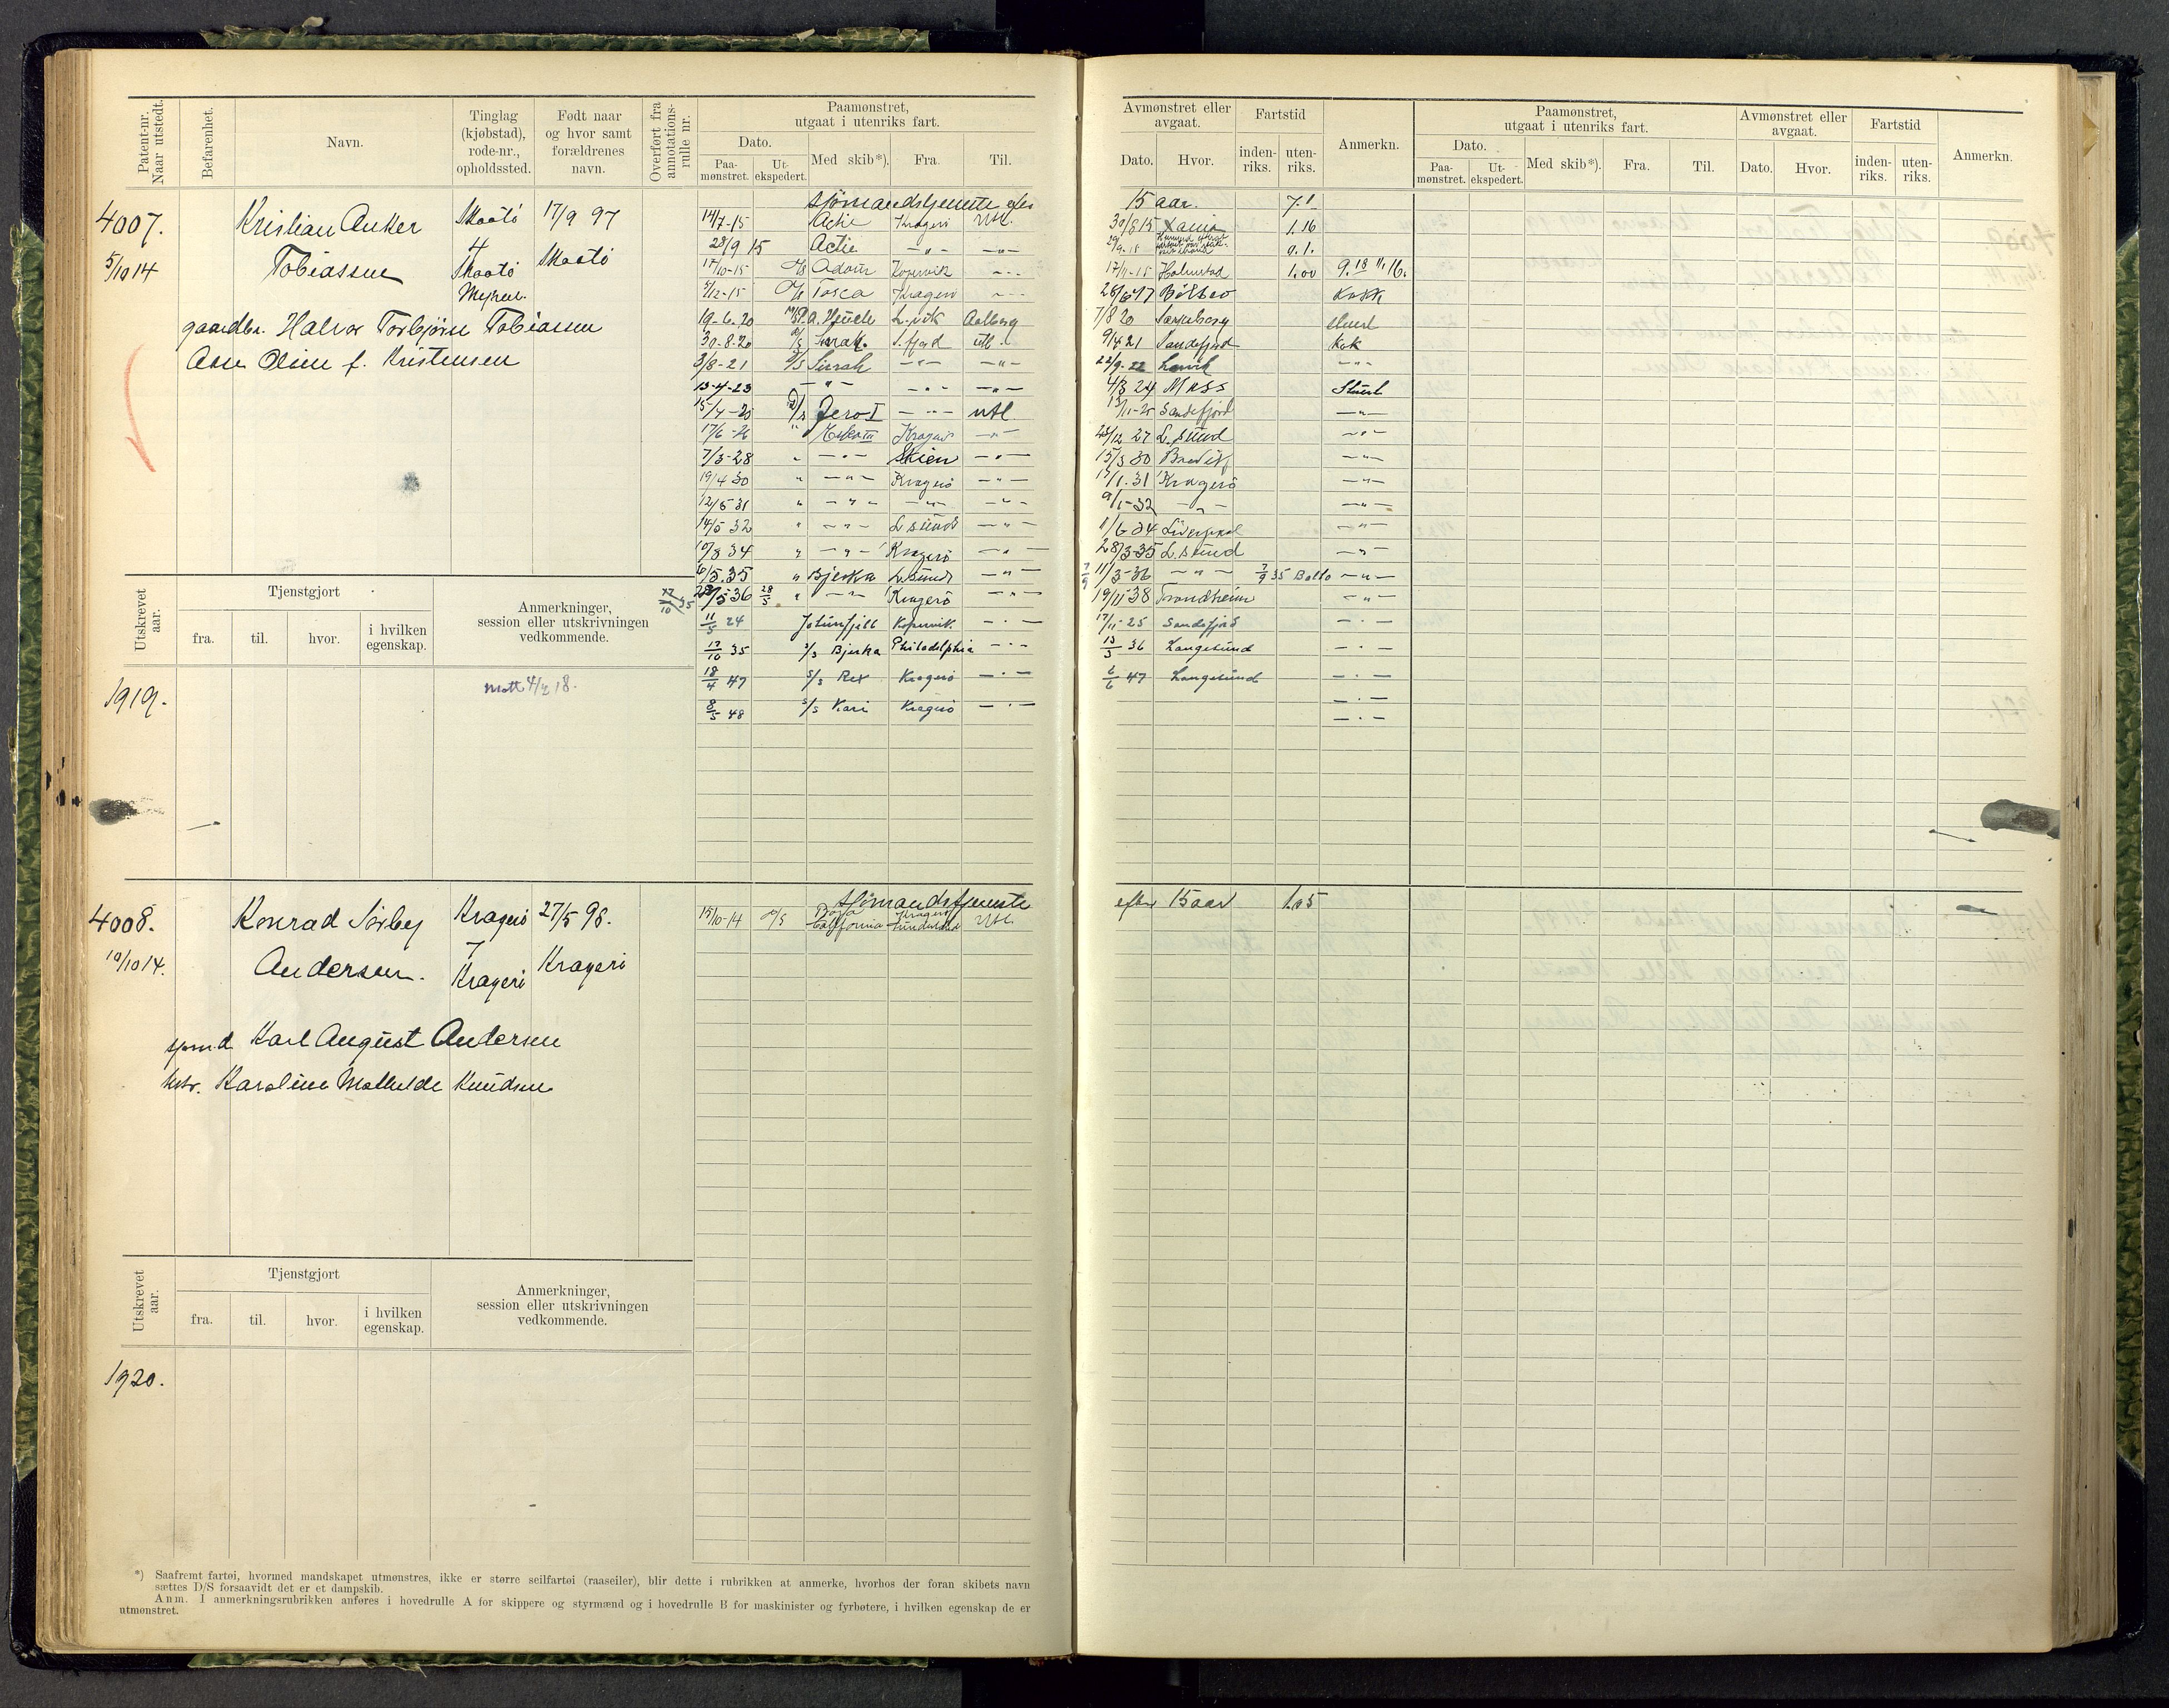 Patent-nr. Naar utstedt.
Befarenhet.
Navn.
Tinglag (kjøbstad), rode-nr., opholdssted.
Født naar og hvor samt forældrenes navn.
Overført fra annotations-rulle nr.
Paamønstret, utgaat i utenriks fart.
Dato.
Paa-mønstret.
Ut-ekspedert.
Med skib*).
Fra.
Til.
Avmønstret eller avgaat.
Dato.
Hvor.
Fartstid
inden-riks.
uten-riks.
Anmerkn.
Paamønstret, utgaat i utenriks fart.
Dato.
Paa-mønstret.
Ut-ekspedert.
Med skib*).
Fra.
Til.
Avmønstret eller avgaat.
Dato.
Hvor.
Fartstid
inden-riks.
uten-riks.
Anmerkn.
4007.
5/10 14
Kristian Anker
Tobiassen
Skaatö
4
Skaatö
17/9 97
Skaatö
gaardbr. Halvor Torbjörn Tobiassen
Oline f. Kristensen
sjömandstjeneste efter 15 aar. 7.1
14/7-15 Actie Kragerö Utl. 30/8 15 1.16
28/9 15 Actie —"— —"— 9.1.
17/10-15 Kopervik —"— 17/11-15 Halmstad 1.00
5/12-15 Tosca Kragerö —"— Kokk
19-6-20 L.vik Aalborg 7/8 20 Sarpsborg Stuert
30-8-20 Sirrah S.fjord Utl. 9/4 21 Sandefjord Kok
3/8-21 D/S Sirrah —"— —"— 22/9-22 Larvik —"—
13-4-23 —"— —"— —"— 4/3 24 Moss Stuert
Jero I —"— utl Sandefjord —"—
17/6-26 " Kragerö —"— 23/12 27 L.sund —"—
7/3-28 " —"— Skien —"— 15/3 30 Brevik —"—
19/4 30 " —"— Kragerö —"— 15/1-31 Kragerö —"—
12/5-31 " —"— —"— —"— 9/1-32 —"— —"—
14/5 32 " —"— L.sund —"— 11/6-34 Liverpool —"—
10/8 34 " —"— Kragerö —"— 28/3-35 L.sund —"—
6/5.35 " Bjerka L.sund —"— 11/3-36 —"— 7/9 35 Balto —"—
28/5 36 28/5 " —"— Kragerö —"— 19/11 38 Trondheim —"—
11/5 24 Jotunfjell Kopervik —"— 17/11-25 Sandefjord —"—
17/10 35 S/S Bjerka Philadelphia —"— 13/3 36 Langesund —"—
18/4 47 S/S Rex Kragerö —"— 6/6 47 Langesund —"—
8/5 48 S/S Kari Kragerö —"— —"—
—"—
Utskrevet aar.
Tjenstgjort
fra.
til.
hvor.
i hvilken egenskap.
Anmerkninger, session eller utskrivningen vedkommende.
17/10 35
1919.
4008.
10/10 14.
Konrad Sörby
Andersen.
Kragerö
7
Kragerö
27/5 98.
Kragerö
sjömandstjeneste efter 15 aar 1.05
15/10-14 D/S California Sunderland Utl.
Karl August Andersen
hstr. Karoline Mathilde Knudsen
Utskrevet aar.
Tjenstgjort
fra.
til.
hvor.
i hvilken egenskap.
Anmerkninger, session eller utskrivningen vedkommende.
1920.
*) Saafremt fartøi, hvormed mandskapet utmønstres, ikke er større seilfartøi (raaseiler), blir dette i rubrikken at anmerke, hvorhos der foran skibets navn
sættes D/S forsaavidt det er et dampskib.
Anm. I anmerkningsrubrikken anføres i hovedrulle A for skippere og styrmænd og i hovedrulle B for maskinister og fyrbøtere, i hvilken egenskap de er
utmønstret.